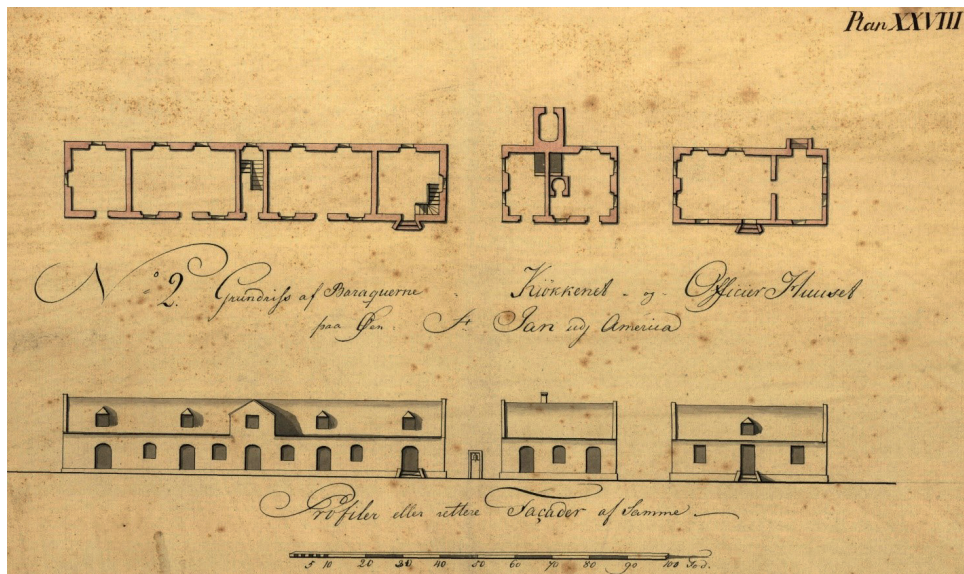 Plan XXVIII
No 2. Grundriss af Baraquerne Kiökkenet - og - Officier Huuset
paa Øen St Jan udj America
Profiler eller rettere Façader af Samme
5 10 20 30 40 50 60 70 80 90 100 Fod.